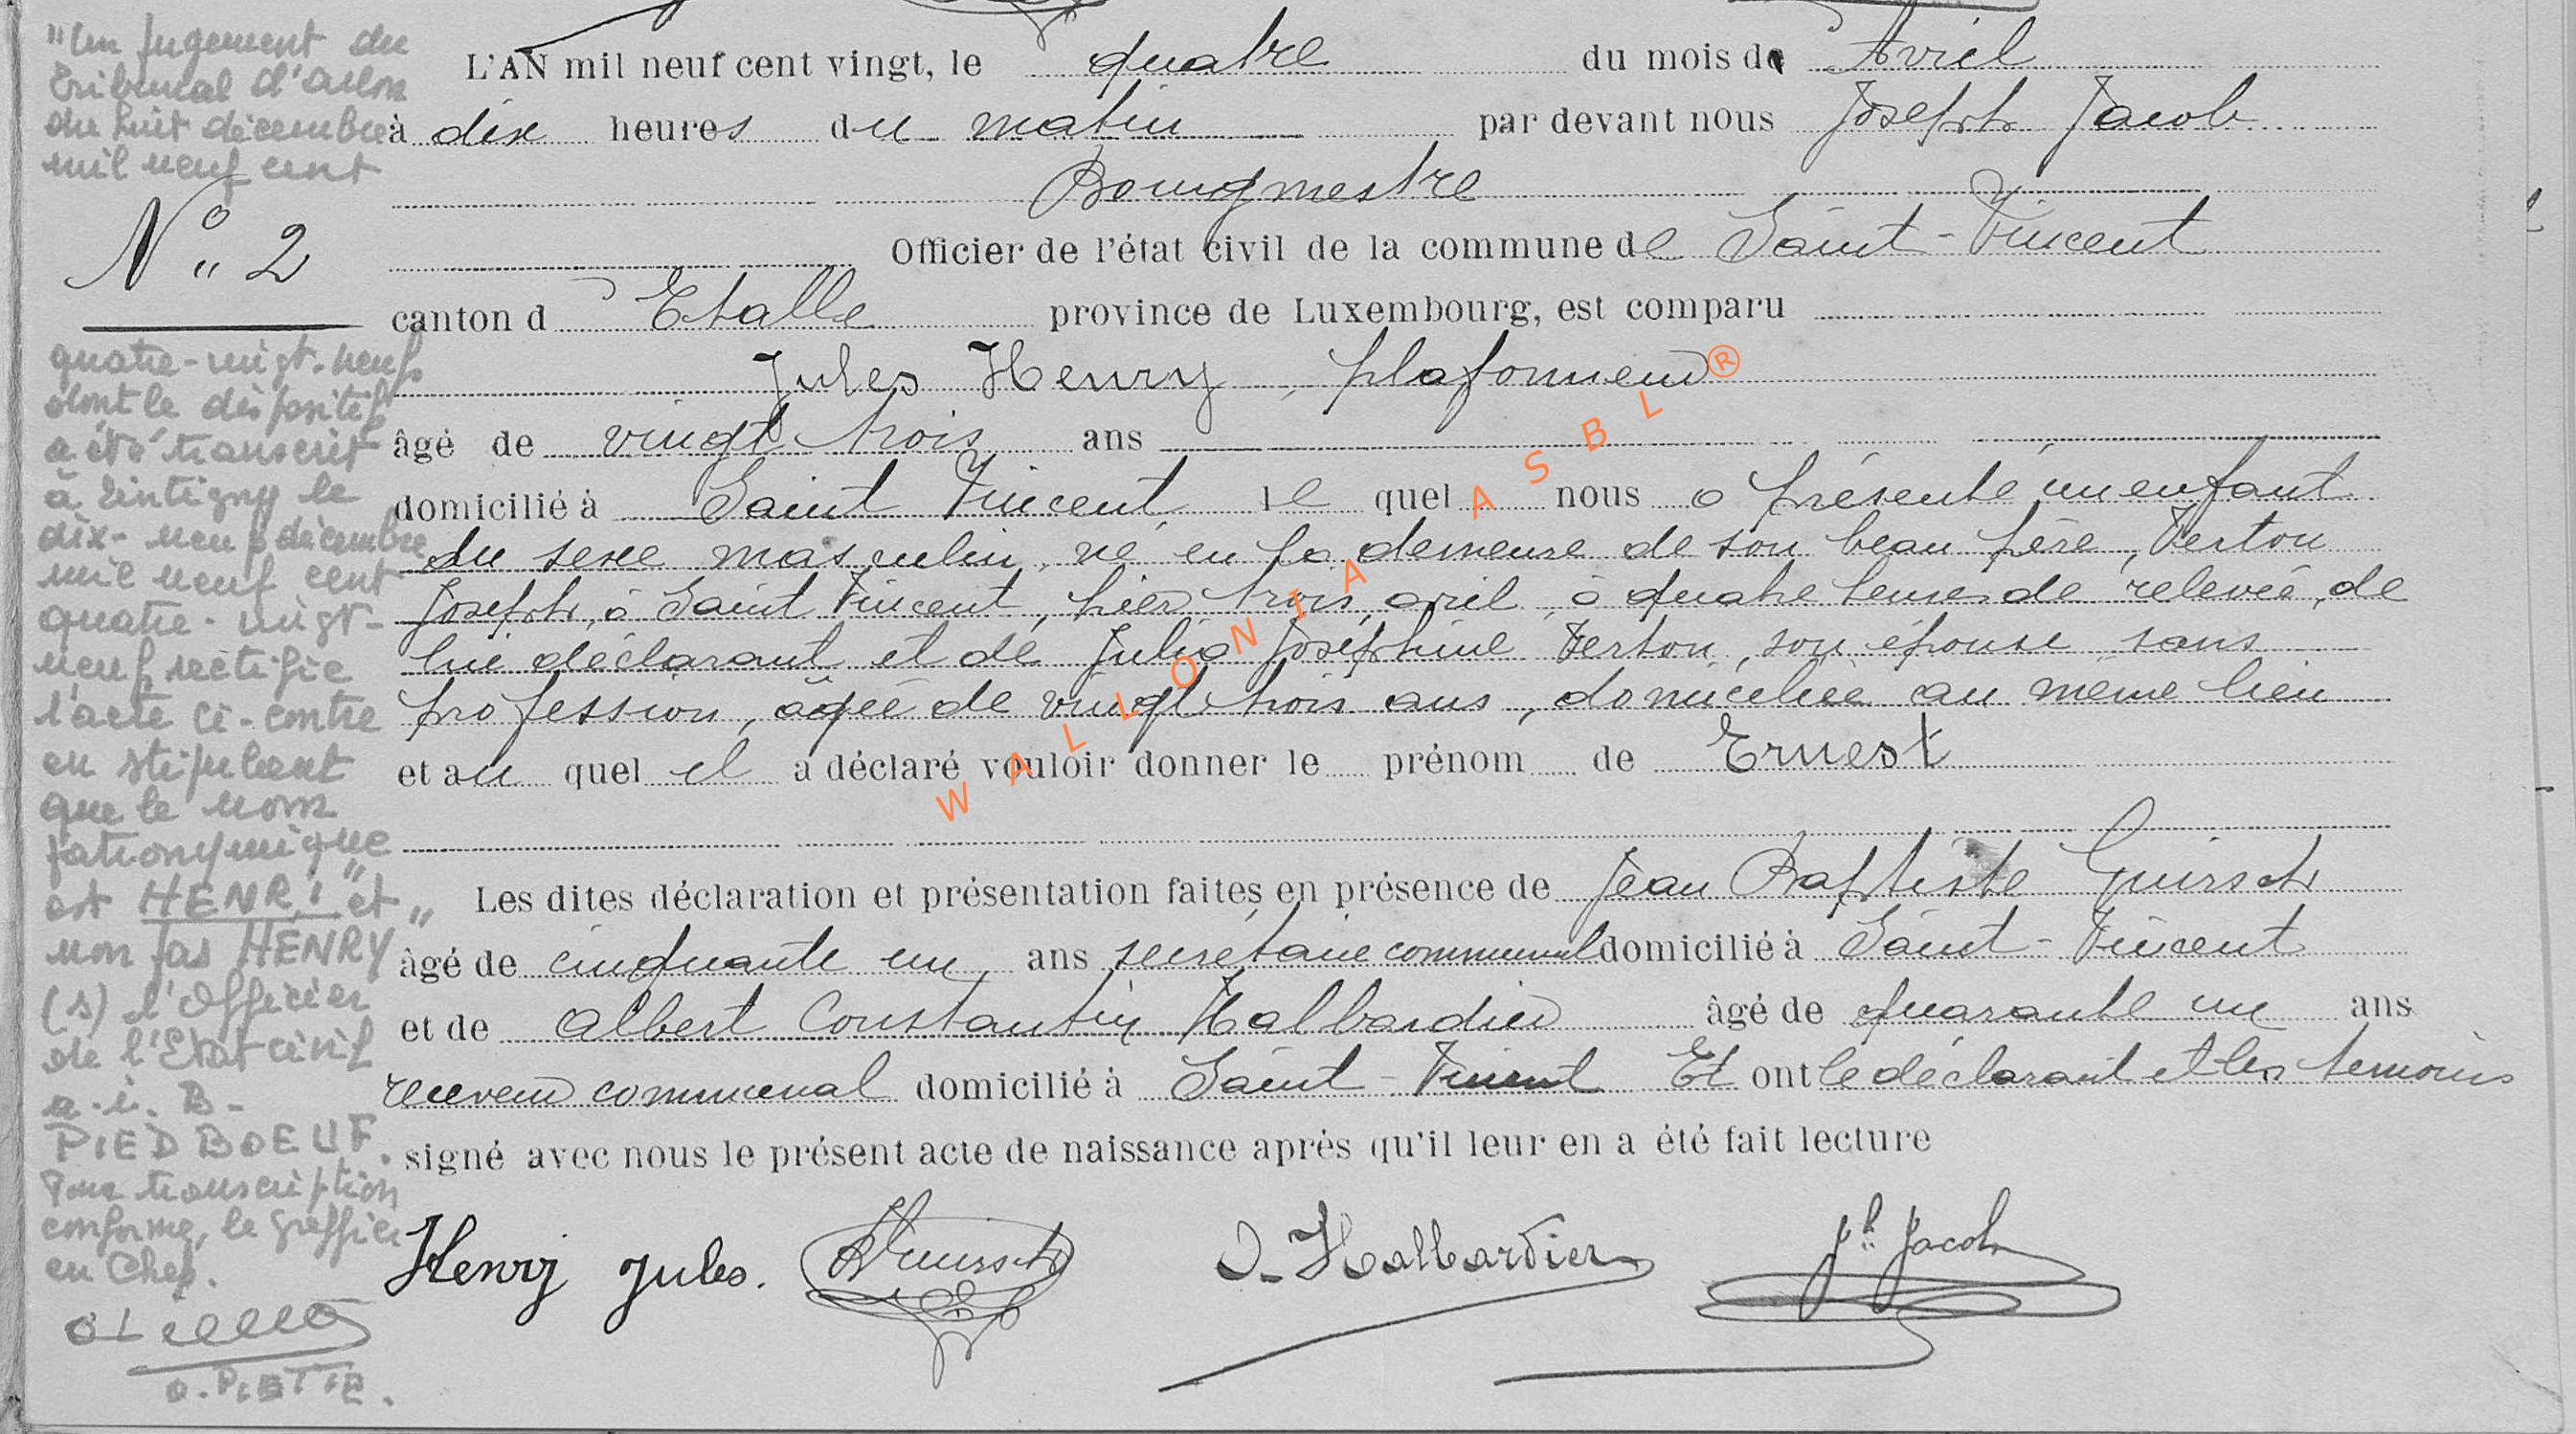 "Un jugement du
tribunal d'Arlon
du huit décembre
mil neuf cent
N° 2
quatre-vingt-neuf
dont le dispositif
a été transcrit
à Tintigny le
dix-neuf décembre
mil neuf cent
quatre-vingt-
neuf rectifie
l'acte ci-contre
en stipulant
que le nom
patronymique
est "HENRI" et
non pas HENRY"
(s) l'Officier
de l'Etat civil
a.i. B.
PIEDBOEUF.
Pour transcription
conforme, le Greffier
en Chef.
O. PIETTE.
L'AN mil neuf cent vingt, le quatre du mois de Avril
à dix heures du matin par devant nous Joseph Jacob
Bourgmestre
Officier de l'état civil de la commune de Saint-Vincent
canton d'Etalle province de Luxembourg, est comparu
Jules Henry, plafonneur
âgé de vingt trois ans
domicilié à Saint Vincent lequel nous a présenté un enfant
du sexe masculin, né en la demeure de son beau père, Verton
Joseph, à Saint Vincent, hier trois avril, à quatre heures de relevée, de
lui déclarant et de Julia Joséphine Verton, son épouse sans
profession, âgée de vingt trois ans, domiciliée au même lieu
et au quel il a déclaré vouloir donner le prénom de Ernest
Les dites déclaration et présentation faites en présence de Jean Baptiste Guirsch
âgé de cinquante un ans secrétaire communal domicilié à Saint-Vincent
et de Albert Constantin Halbardier âgé de quarante un ans
receveur communal domicilié à Saint-Vincent Et ont le déclarant et les témoins
signé avec nous le présent acte de naissance après qu'il leur en a été fait lecture
Henry Jules. Guirsch A. Halbardier Jh Jacob
WALLONIA ASBL ®